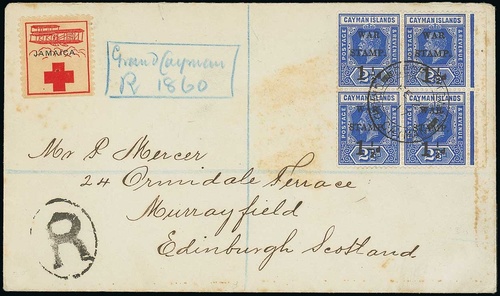 JAMAICA
Grand Cayman
R 1860
CAYMAN ISLANDS
POSTAGE & REVENUE
WAR
STAMP
1½d
CAYMAN ISLANDS
POSTAGE & REVENUE
WAR
STAMP
1½d
CAYMAN ISLANDS
POSTAGE & REVENUE
WAR
STAMP
1½d
CAYMAN ISLANDS
POSTAGE & REVENUE
WAR
STAMP
1½d
Mr P Mercer
24 Ormidale Terrace
Murrayfield
Edinburgh Scotland
R